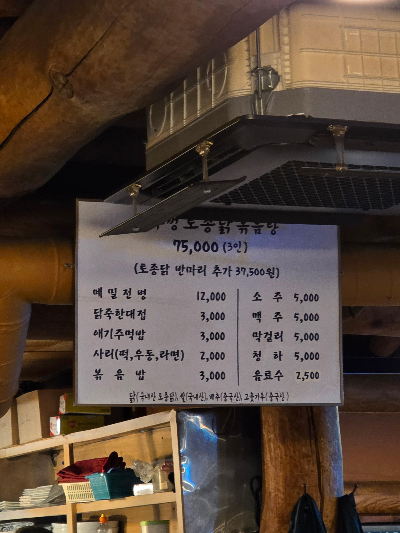 토종닭 볶음탕
75,000 (3인)
(토종닭 반마리 추가 37,500원)
메밀전병 12,000
닭죽한대접 3,000
애기주먹밥 3,000
사리(떡,우동,라면) 2,000
볶음밥 3,000
소주 5,000
맥주 5,000
막걸리 5,000
청하 5,000
음료수 2,500
닭(국내산 토종닭), 쌀(국내산), 배추(중국산), 고춧가루(중국산)